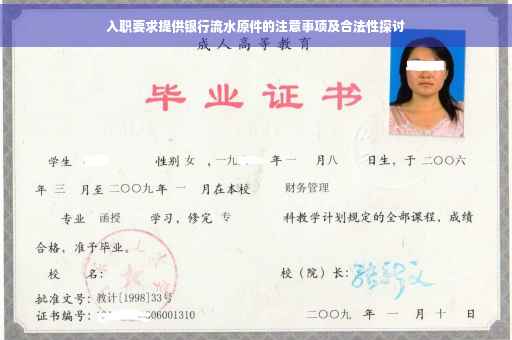 入职要求提供银行流水原件的注意事项及合法性探讨
成人高等教育
毕业证书
学生 性别 女 ，一九 年一 月八 日生，于二〇〇六
年 三 月至二〇〇九年 一 月在本校 财务管理
专业 函授 学习，修完 专 科教学计划规定的全部课程，成绩
合格，准予毕业。
校 名： 校（院）长：
批准文号：教计[1998]33号
证书编号： 06001310 二〇〇九 年 一 月 十 日